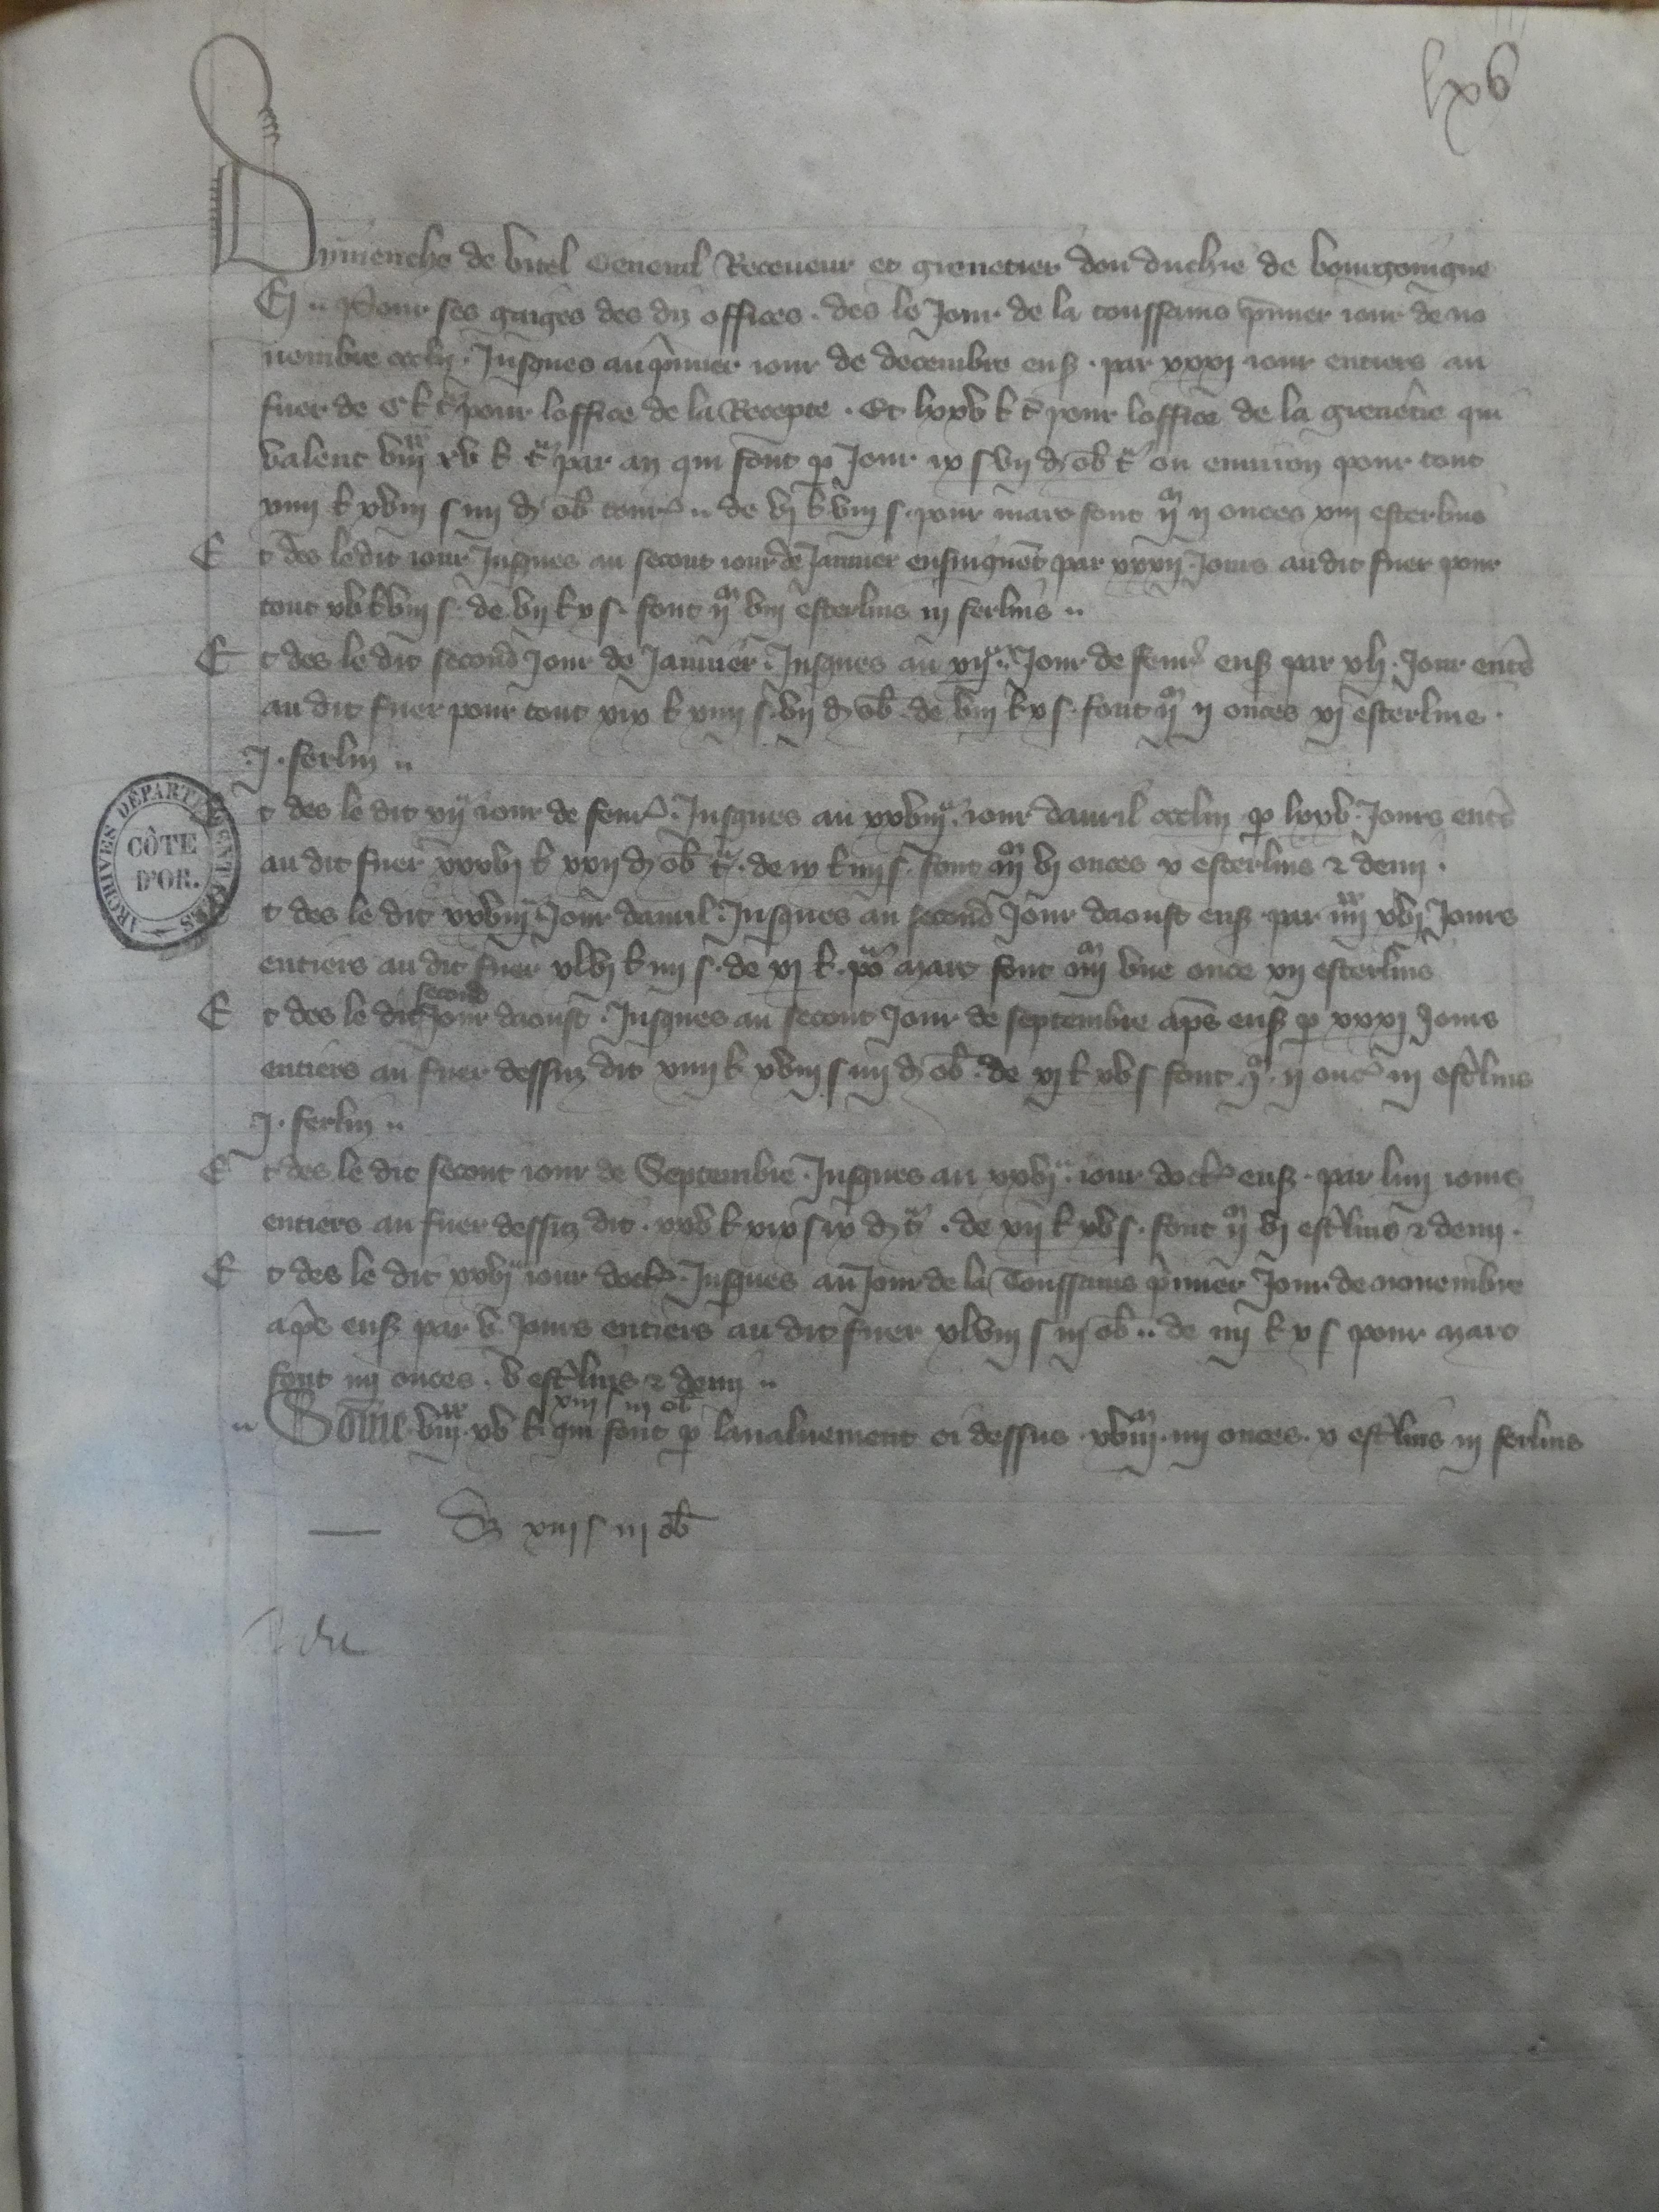 lxv
Dimenche de vitel General Receueur et grenetier dou duchie de bourgoingne
Et pour ses gaiges des diz offices . des le Jour de la toussains premier iour de no
uembre ccclij . Jusques au premier iour de decembre ens . par xxxj iour entiers au
fuer de C l t pour loffice de la Recepte . Et lxxv l t pour loffice de la greneterie qui
valent viij xx xv l t par an qui sont p Jour ix s vij d ob t ou enuiron pour tout
xiiij l xviij s iiij d ob tour de vj l viij s . pour marc sont ij m ij onces xiij esterlins
Et des le dit iour Jusques au secont iour de Januier ensuiguent par xxxij Jours au dit fuer pour
tout xv l viij s . de vij l x s . sont ij m viij esterlins iij ferlins
Et des le dit second Jour de Januier . Jusques au xij Jour de feur ens par xlj . Jour entes
au dit fuer pour tout xix l xiiij s . vij d ob . de viij l x s . sont ij m ij onces xj esterlins .
J . ferlin
Et des le dit xij iour de feur . Jusques au xxviij . iour dauril cccliij p lxxv . Jours entes
au dit fuer xxxvj l xxij d ob t . de ix l iiij s . sont iij m vj onces x esterlins et demi .
Et des le dit xxviij Jour dauril . Jusques au second Jour daoust ens par iiij xx xvj Jours
entiers au dit fuer xlvj l iiij s . de xj l . po marc sont iiij m vne once xij esterlins
Et des le dit second Jour daoust . Jusques au secont Jour de septembre aps ens p xxxj Jours
entiers au fuer dessuz dit xiiij l xviij s iiij d ob . de xj l xv s sont j m . ij onc iij estlins
J . ferlin
Et des le dit secont iour de Septembre . Jusques au xxvj . iour doct ens . par liiij iours
entiers au fuer dessuz dit . xxv l xix s ix d t . de xij l xv s . sont ij m vj estlins et demi .
Et des le dit xxvj iour doct . Jusques au Jour de la Toussains premier Jour de nouembre
aps ens par v Jours entiers au dit fuer xlviij s iij ob de iiij l x s pour marc
sont iiij onces . v estlins et demi
xiiij s iij ob
Somme viij xx xv l qui sont p laualuement ci dessus . xviij m iiij onces . x estlins iij ferlins
xiiij s iij ob
ARCHIVES DÉPARTEMENTALES
CÔTE
D'OR.